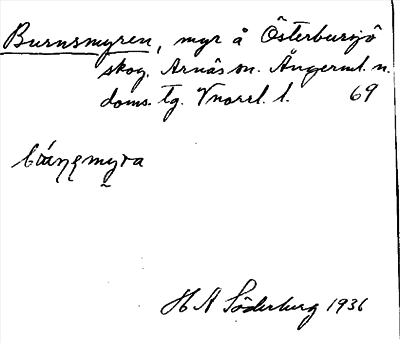 Burnsmyren, myr å Österbursjö
skog. Arnäs sn. Ångerml. n.
doms. tg. Vnorrl. l. 69
H A Söderberg 1936